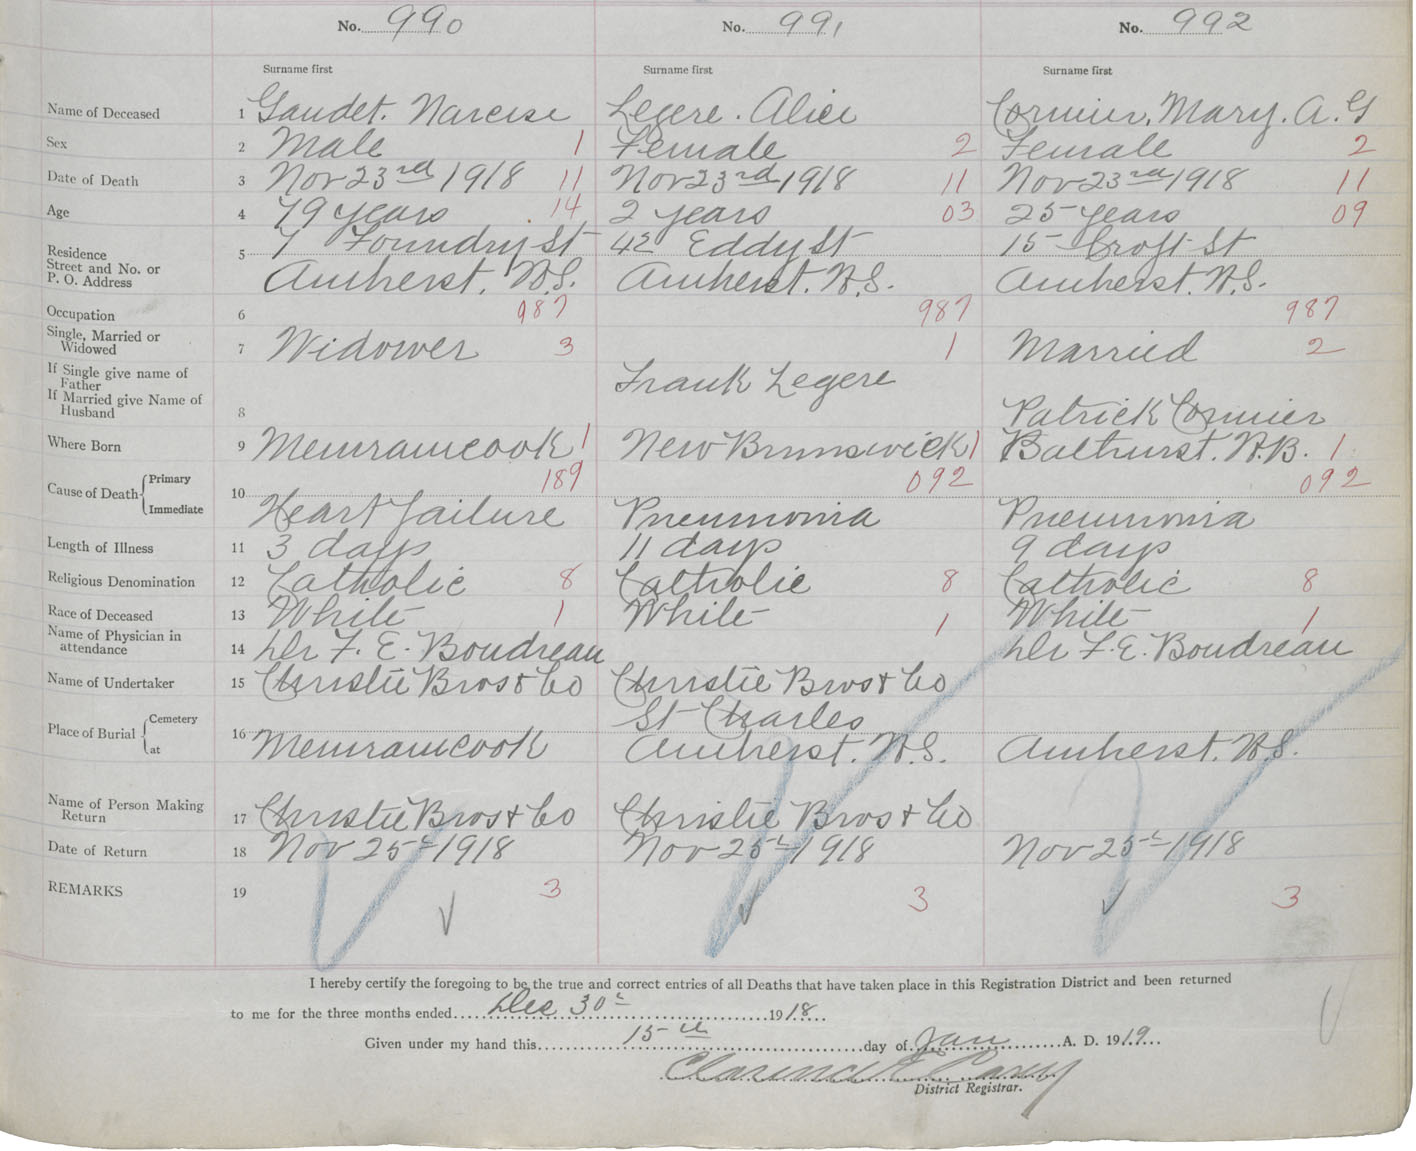 No. 990 No. 991 No. 992
Surname first Surname first Surname first
Name of Deceased 1 Gaudet. Narcise Legere. Alice Cormier, Mary. A. G
Sex 2 Male 1 Female 2 Female 2
Date of Death 3 Nov 23rd 1918 11 Nov 23rd 1918 11 Nov 23rd 1918 11
Age 4 79 years 14 2 years 03 25 years 09
Residence 5 7 Foundry St 42 Eddy St 15 Croft St
Street and No. or
P. O. Address Amherst. N.S. Amherst. N.S. Amherst. N.S.
Occupation 6 987 987 987
Single, Married or
Widowed 7 Widower 3 1 Married 2
If Single give name of
Father Frank Legere
If Married give Name of
Husband 8 Patrick Cormier
Where Born 9 Memramcook 1 New Brunswick 1 Bathurst. N.B. 1
Cause of Death Primary 10 189 092 092
Immediate Heart failure Pneumonia Pneumonia
Length of Illness 11 3 days 11 days 9 days
Religious Denomination 12 Catholic 8 Catholic 8 Catholic 8
Race of Deceased 13 White 1 White 1 White 1
Name of Physician in
attendance 14 Dr F. E. Boudreau Dr F. E. Boudreau
Name of Undertaker 15 Christie Bros & Co Christie Bros & Co
Place of Burial Cemetery 16 St Charles
at Memramcook Amherst. N.S. Amherst. N.S.
Name of Person Making
Return 17 Christie Bros & Co Christie Bros & Co
Date of Return 18 Nov 25th 1918 Nov 25th 1918 Nov 25th 1918
REMARKS 19 3 3 3
I hereby certify the foregoing to be the true and correct entries of all Deaths that have taken place in this Registration District and been returned
to me for the three months ended Dec 30th 1918
Given under my hand this 15th day of Jan A. D. 1919
Clarence
District Registrar.